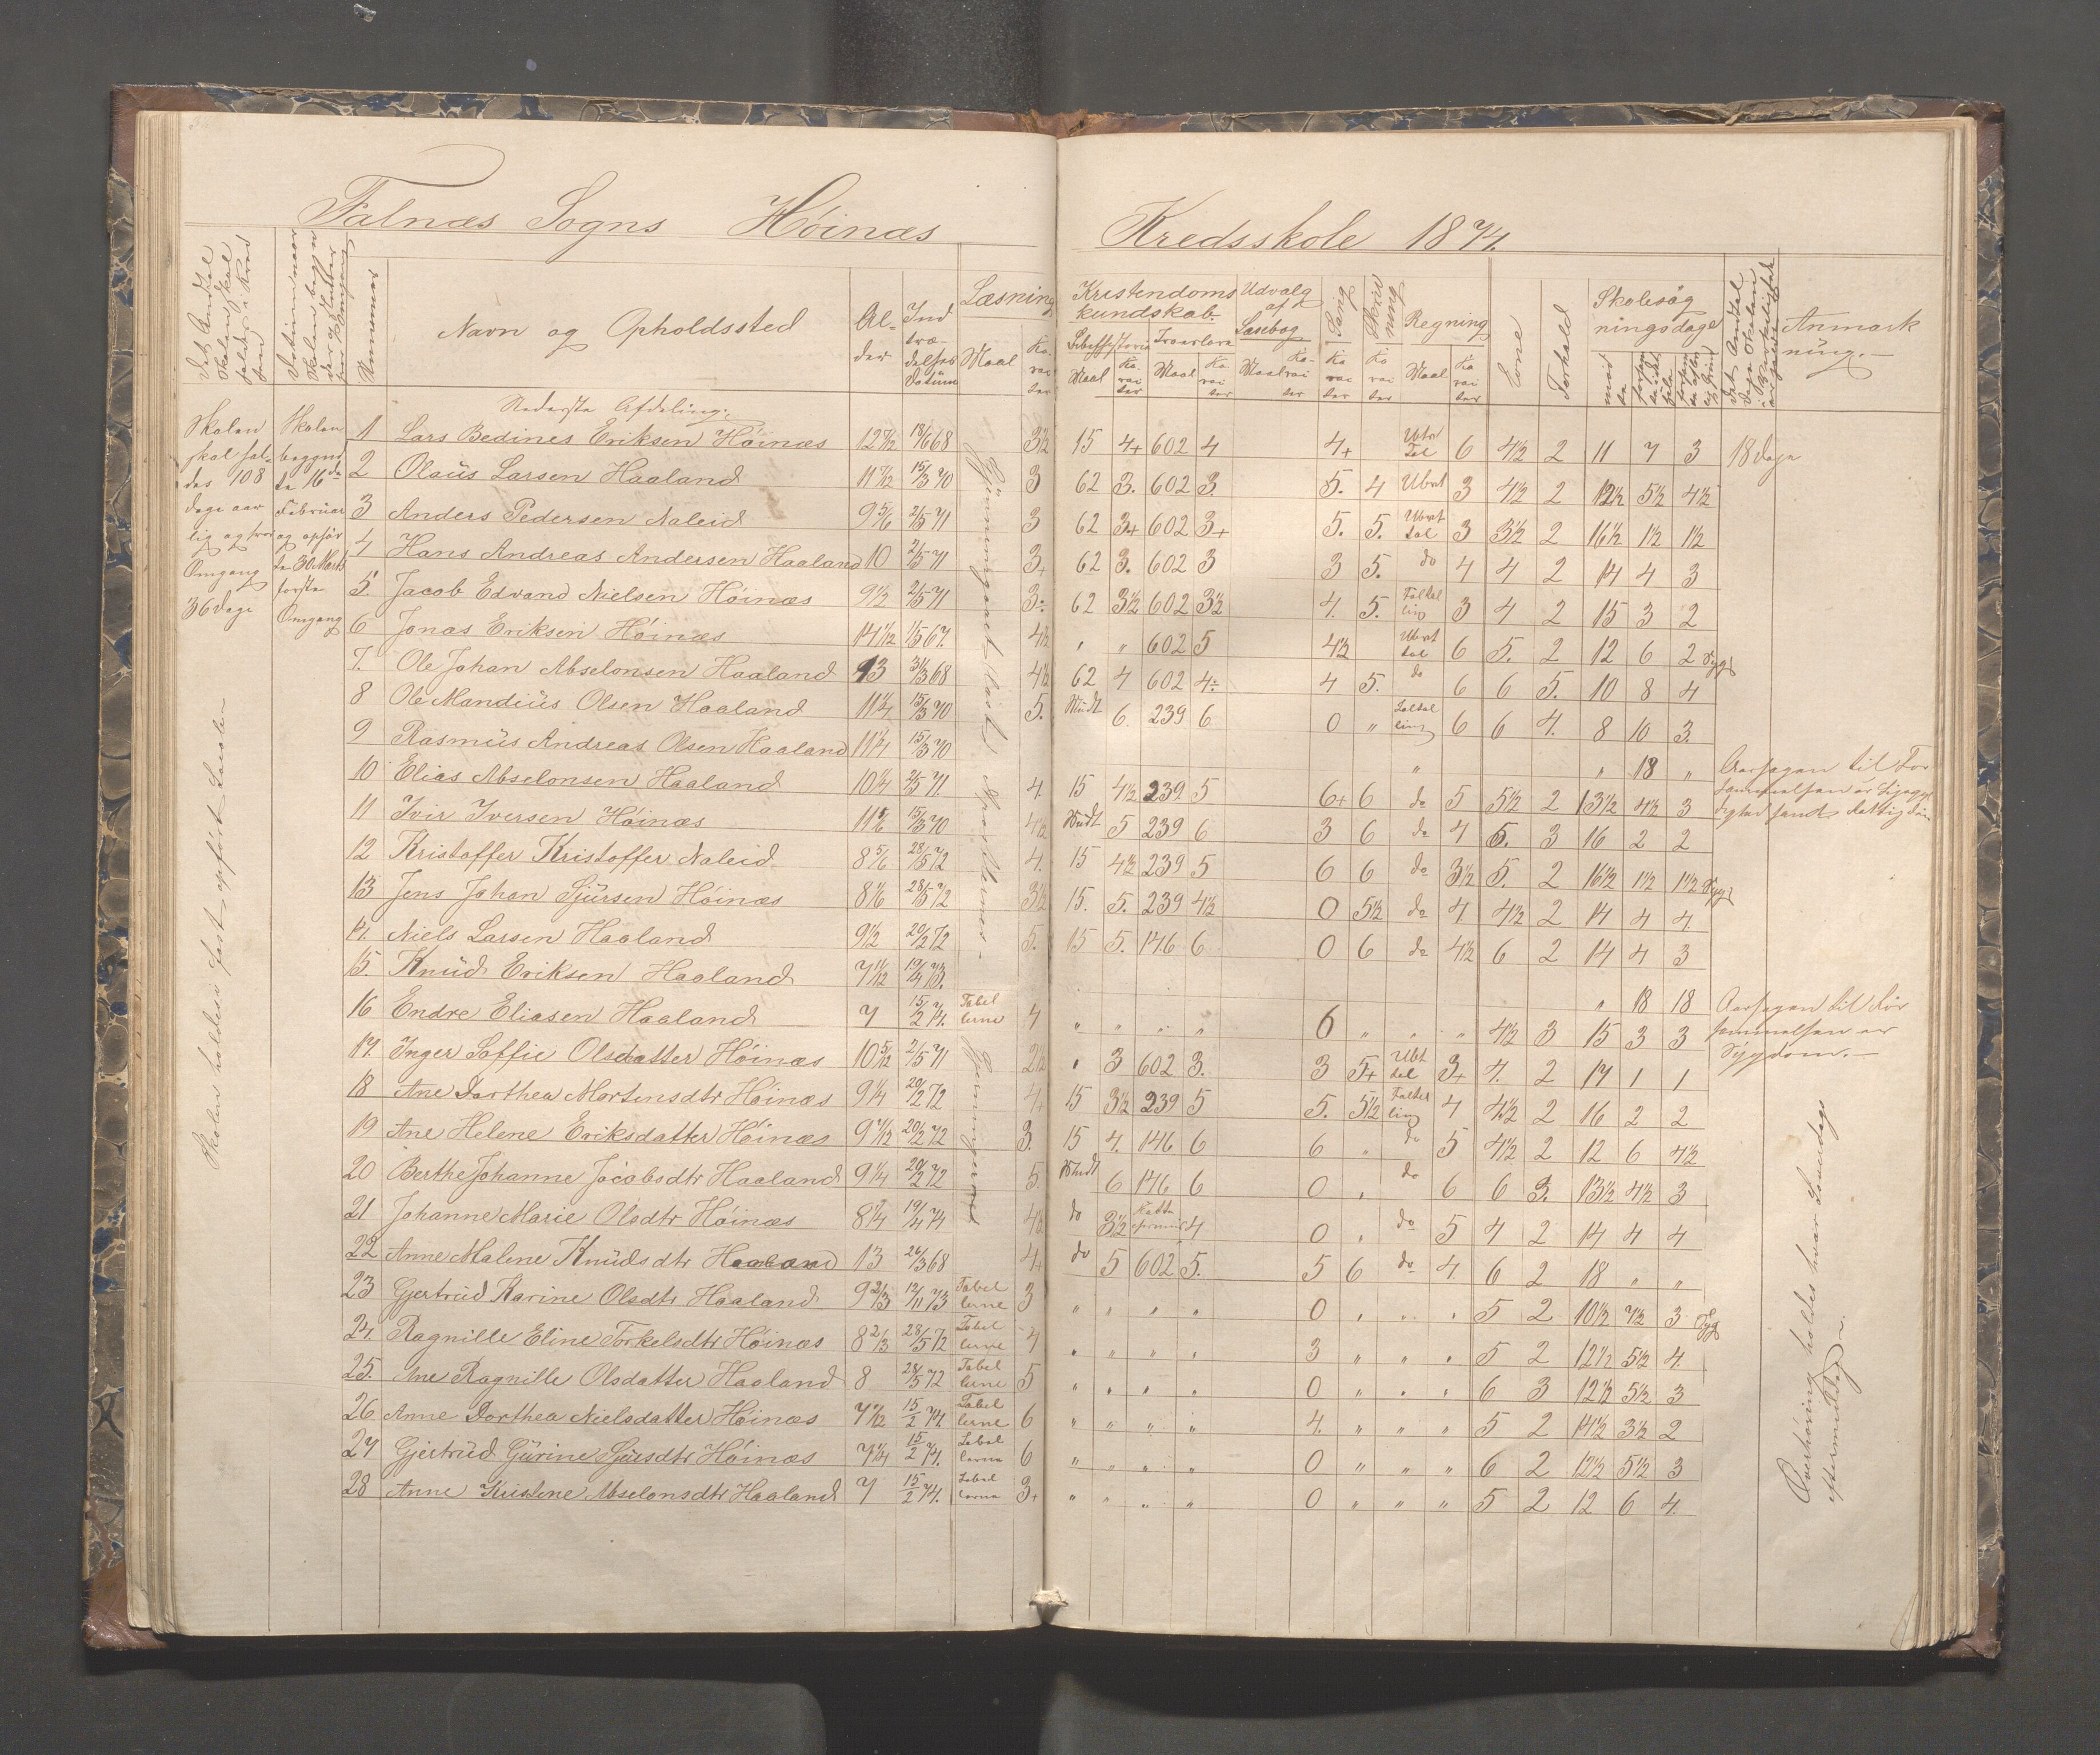 Falnæs Sogns Höinæs Kredsskole 1874.
Nummer Navn og Opholdssted Alder Indtrædelses Datum Læsning Maal Karakter
Kristendomskundskab Udvalg af Læsebog Sang Skrivning Regning Evne Forhold Skolesögningsdage Anmærkning.
Maal Karakter Maal Karakter Maal Karakter Karakter Karakter Maal Karakter
Skolen skal holdes 108 Dage aarlig og hver Omgang 36 Dage
Skolen begynder 16de Februar og ophör 30 Marts förste Omgang
Nederste Afdeling.
1 Lars Bedines Eriksen Höinæs 12 7/12 18/6 68 3½ 15 4+ 602 4 4+ Ubn Tal 6 4½ 2 11 7 3 18 Dage
2 Olaüs Larsen Haaland 11 7/12 15/3 70 3 62 3. 602 3. 5. 4 Ubnt 3 4½ 2 12½ 5½ 4½
3 Anders Pedersen Naleid 9 5/6 2/5 71 3 62 3+ 602 3+ 5. 5. Ubnt tal 3 3½ 2 16½ 1½ 1½
4 Hans Andreas Andersen Haaland 10 2/5 71 3+ 62 3. 602 3 3 5. do 4 4 2 14 4 3
5. Jacob Edvand Nielsen Höinæs 9½ 2/5 71 3. 62 3½ 602 3½ 4. 5. Faltelling 3 4 2 15 3 2
6 Jonas Eriksen Höinæs 14 1/2 1/5 67. 4½ " " 602 5 4½ Ubnt tal 6 5. 2 12 6 2 Syg
7. Ole Johan Abselonsen Haaland 13 31/3 68 4½ 62 4 602 4. 4 5. do 6 6 5. 10 8 4
8 Ole Mandiüs Olsen Haaland 11¼ 15/3 70 5. Mudt 6 239 6 0 " Taltelling 6 6 4. 8 10 3.
9 Rasmüs Andreas Olsen Haaland 11¼ 15/3 70 " " 18 "
10 Elias Abselonsen Haaland 10¼ 2/5 71. 4. 15 4½ 239 5 6+ 6 do 5 5½ 2 13½ 4½ 3
11 Ivir Iversen Höinæs 11 1/6 15/3 70 4½ Mudt 5 239 6 3 6 do 4 5. 3 16 2 2
12 Kristoffer Kristoffer Naleid 8 5/6 28/5 72 4. 15 4½ 239 5 6 6 do 3½ 5. 2 16½ 1½ 1½ Syg
13 Jens Johan Sjürsen Höinæs 8 1/6 28/5 72 3½ 15. 5. 239 4½ 0 5½ do 4 4½ 2 14 4 4.
14. Niels Larsen Haaland 9½ 20/2 72 5. 15 5. 146 6 0 6 do 4½ 6 2 14 4 3
15. Knüd Eriksen Haaland 7 11/12 19/4 73. " 18 18
16 Endre Eliasen Haaland 7 15/2 74. Tabellerne 4 " " " " 6 " " " 4½ 3 15 3 3
17. Inger Soffie Olsdatter Höinæs 10 5/12 2/5 71 2½ " 3 602 3. 3 5+ Ubt tal 3+ 4. 2 17 1 1
18 Ane Dorthea Mortensdtr Höinæs 9¼ 20/2 72 4+ 15 3½ 239 5 5. 5½ Faltelling 4 4½ 2 16 2 2
19 Ane Helene Eriksdatter Höinæs 9 7/12 20/2 72 3. 15 4. 146 6 6 " do 5 4½ 2 12 6 4½
20 Berthe Johanne Jacobsdtr Haaland 9¼ 20/2 72 5. Mudt 6 146 6 0 " do 6 6 3. 13½ 4½ 3
21 Johanne Marie Olsdtr Höinæs 8¾ 19/4 74 4½ do 3½ 4 0 " do 5 4 2 14 4 4
22 Anne Malene Knüdsdtr Haaland 13 26/3 68 4+ do 5 602 5. 5 6 do 4. 6 2 18 " "
23 Gjertrüd Karine Olsdtr Haaland 9 2/3 12/11 73 Tabellerne 3 " " " " 0 " " " 5 2 10½ 7½ 3 Syg
24. Ragnille Eline Torkelsdtr Höinæs 8 2/3 28/5 72 Tabellerne 4 " " " " 3 " " " 5 2 12½ 5½ 4.
25. Ane Ragnille Olsdatter Haaland 8 28/5 72 Tabellerne 5 " " " " 0 " " " 6 3 12½ 5½ 3
26 Anne Dorthea Nielsdatter Höinæs 7 7/12 15/2 74. Tabellerne 6 " " " " 4. " " " 5 2 14½ 3½ 2
27 Gjertrüd Gürine Sjürsdtr Höinæs 7¼ 15/2 74. Tabellerne 6 " " " " 0 " " " 6 2 12½ 5½ 3
28 Anne Kristene Abselonsdtr Haaland 7 15/2 74. Tabellerne 3+ " " " " 0 " " " 5 2 12 6 4.
Aarsagen til Forsömmelsen er
Aarsagen til Forsömmelsen er Sygdom.
Skolen holdes i fast opfört Locale
Overhöring holdes hver Söndags eftermiddag